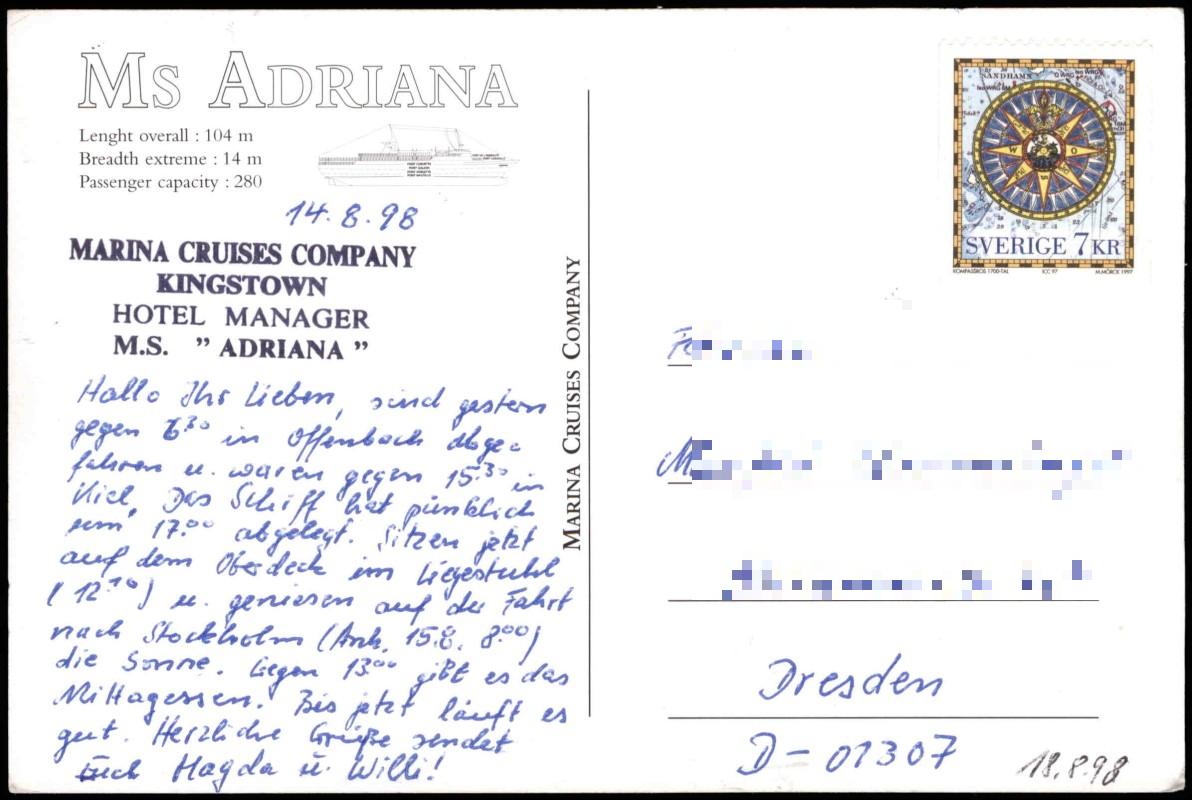 MS ADRIANA
Lenght overall : 104 m
Breadth extreme : 14 m
Passenger capacity : 280
14.8.98
MARINA CRUISES COMPANY
KINGSTOWN
HOTEL MANAGER
M.S. " ADRIANA "
Hallo Ihr Lieben, sind gestern
gegen 6³⁰ in Offenbach abge-
fahren u. waren gegen 15³⁰ in
Kiel. Das Schiff hat pünklich
um 17⁰⁰ abgelegt. Sitzen jetzt
auf dem Oberdeck im Liegestuhl
(12¹⁰) u. geniesen auf der Fahrt
nach Stockholm (Ank. 15.8. 8⁰⁰)
die Sonne. Gegen 13⁰⁰ gibt es das
Mittagessen. Bis jetzt läuft es
gut. Herzliche Grüße sendet
Euch Magda u. Willi!
MARINA CRUISES COMPANY
SANDHAMN
SVERIGE 7 KR
KOMPASSROS 1700-TAL ICC 97 M.MÖRCK 1997
Dresden
D-01307
18.8.98